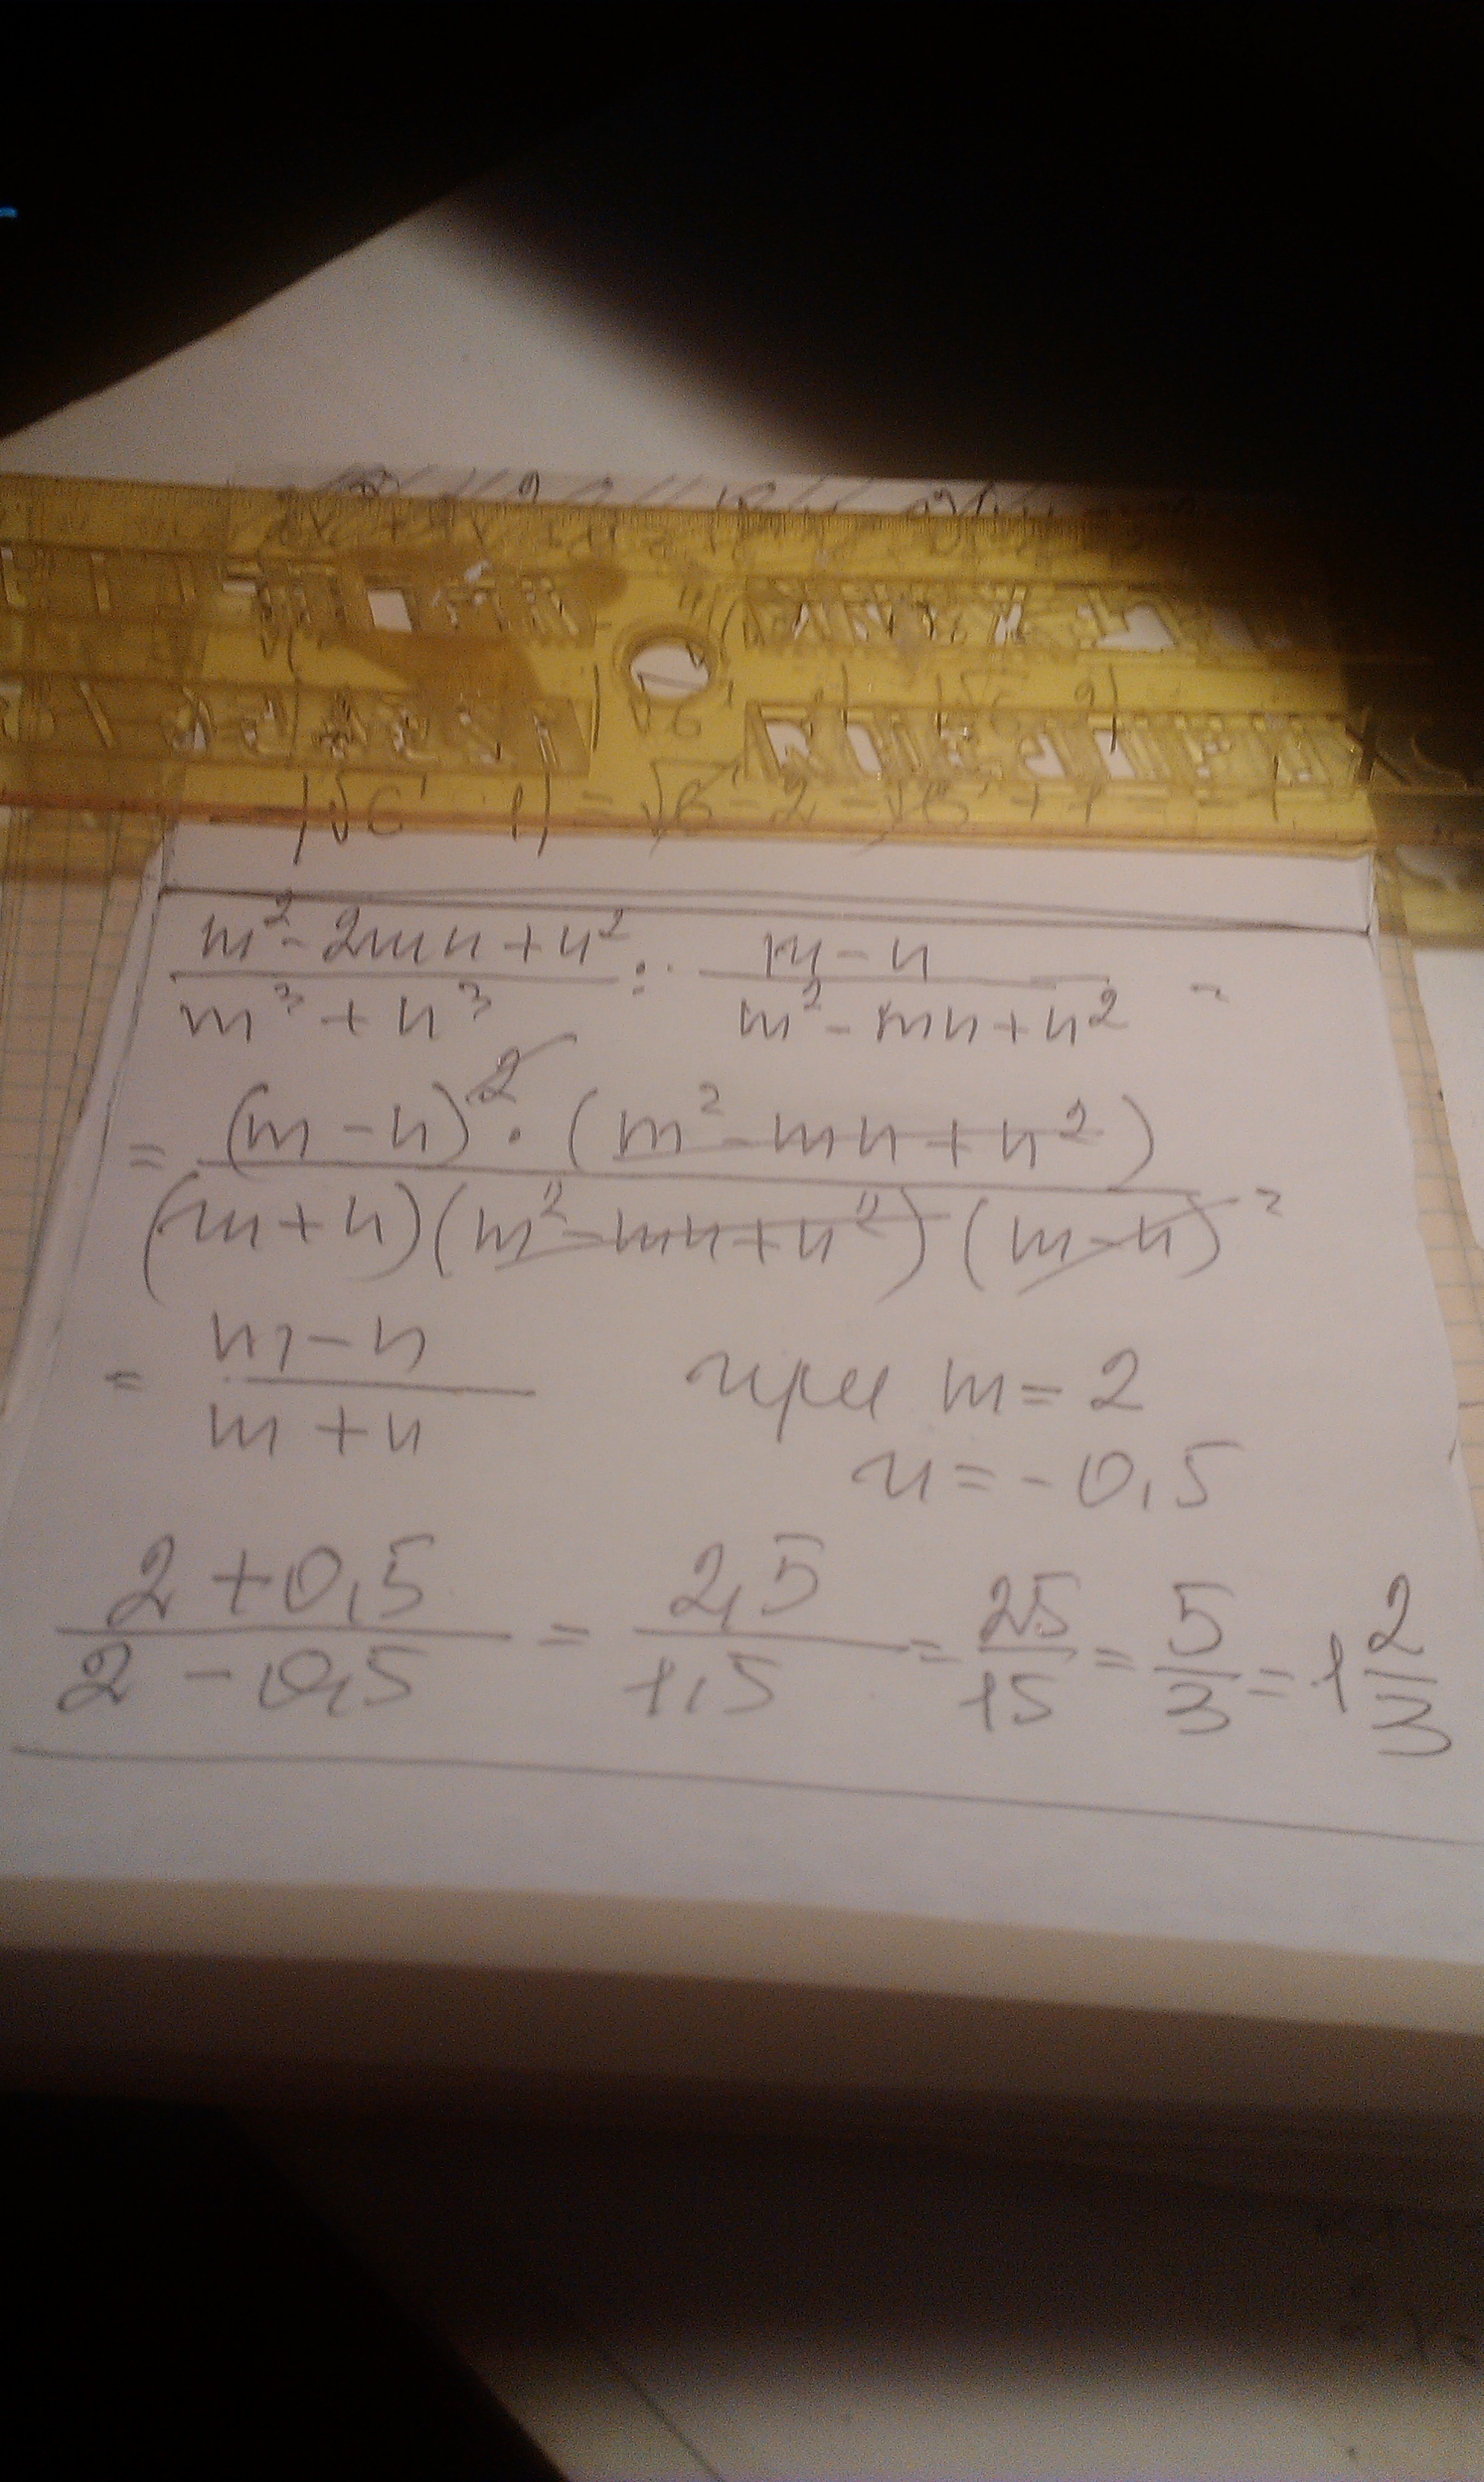 |√6 - 1| = √6 - 2 - √6 + 1 = -1
(m² - 2mn + n²)/(m³ + n³) : (m - n)/(m² - mn + n²) =
= ((m - n)² · (m² - mn + n²))/((m + n)(m² - mn + n²)(m - n)) =
= (m - n)/(m + n) при m = 2
n = -0,5
(2 + 0,5)/(2 - 0,5) = 2,5/1,5 = 25/15 = 5/3 = 1 2/3